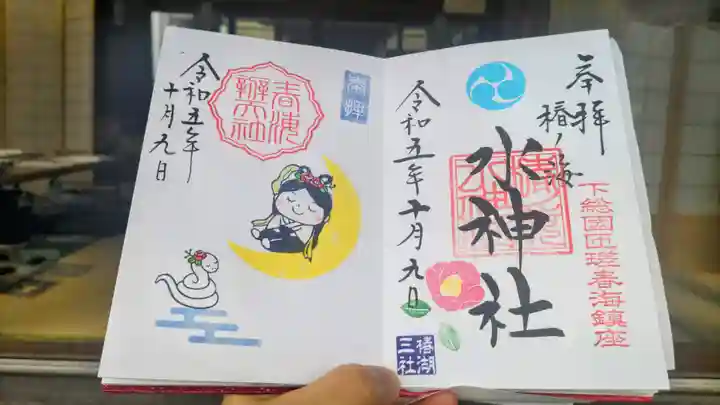 奉拝
椿ノ海
水神社
下総國匝瑳春海鎮座
令和五年十月九日
椿湖
三社
奉拝
春海
辨天社
令和五年
十月九日